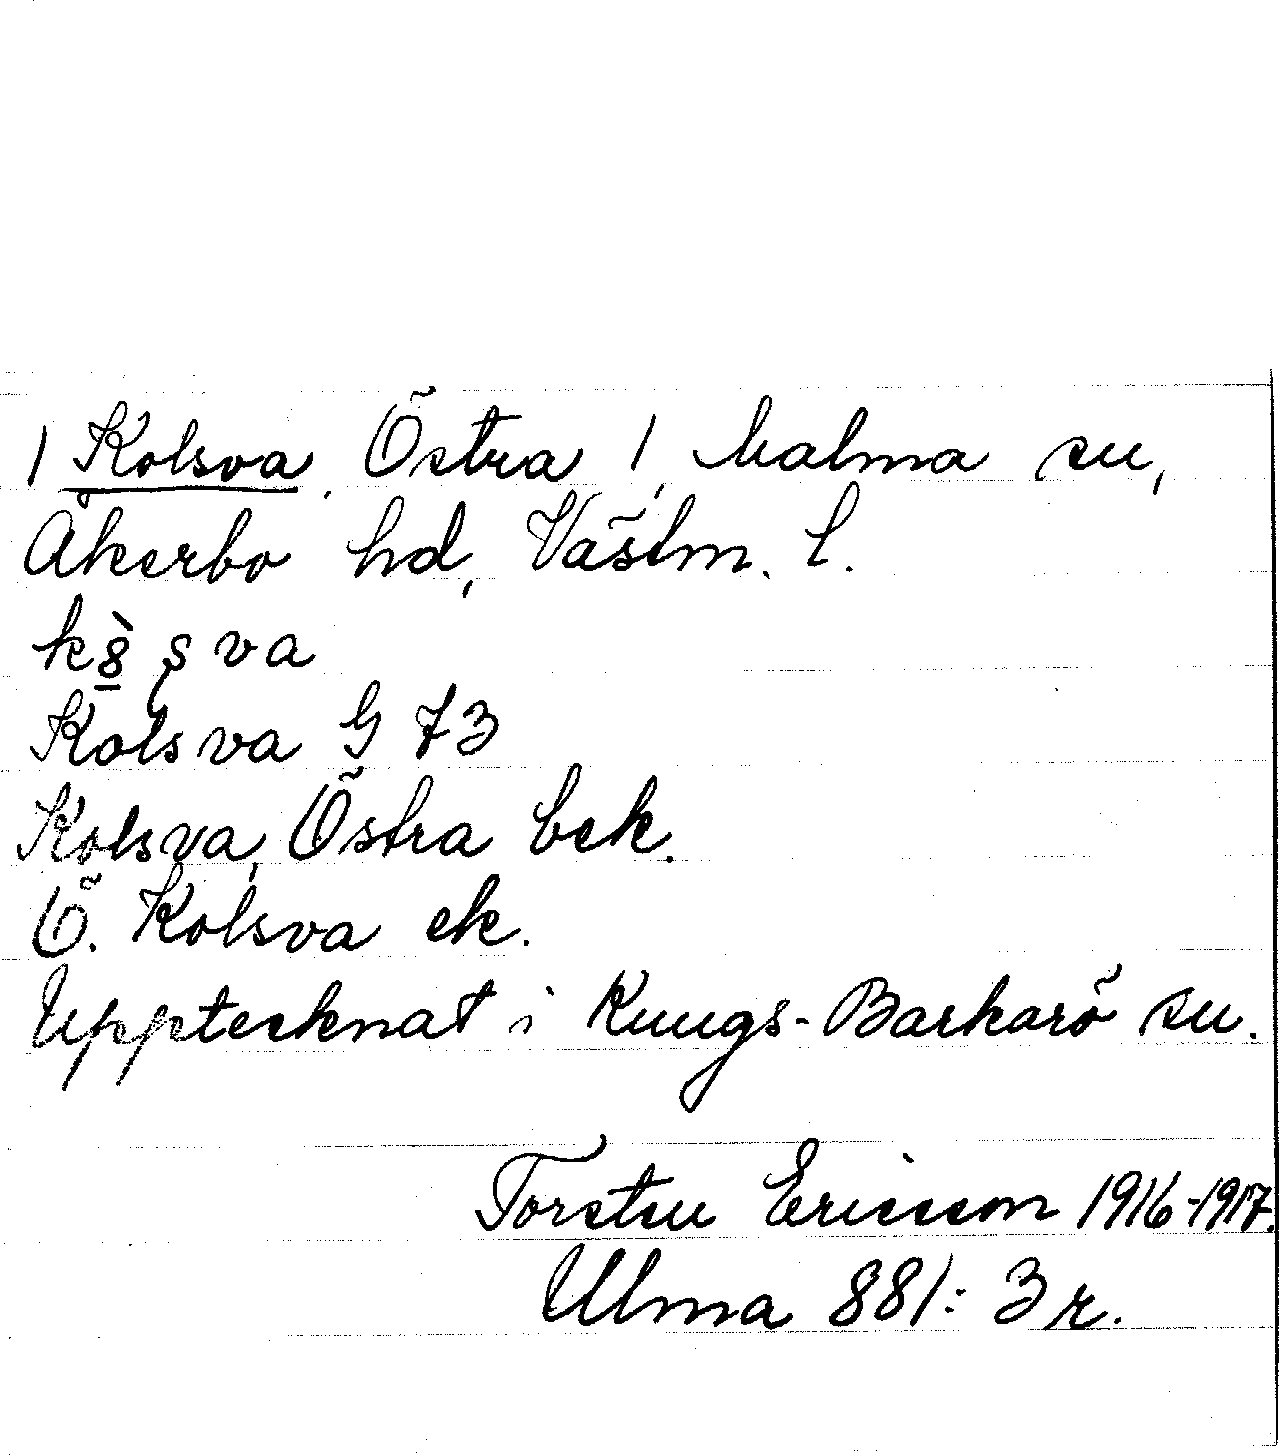 / Kolsva, Östra /, Malma sn,
Åkerbo hd, Västm. l.
Kolsva G 73
Kolsva, Östra bek.
Ö. Kolsva ek.
Upptecknat i Kungs-Barkarö sn.
Torsten Ericsson 1916-1917.
Ulma 881: 3 r.